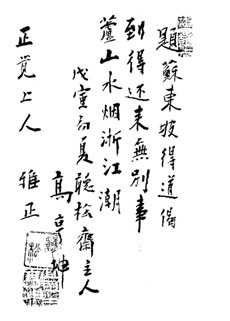 題蘇東坡得道偈
到得还来無別事
蘆山水烟浙江潮
戊寅初夏聽松齋主人
高亨坤
正觉上人 雅正